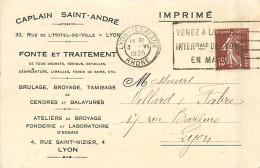 CAPLAIN SAINT-ANDRÉ
33, RUE DE L'HOTEL-DE-VILLE - LYON
FONTE ET TRAITEMENT
DE TOUS DÉCHETS, RÉSIDUS, DÉPOLIS,
DÉSARGENTURE, LIMAILLES, FONDS DE BAINS, ETC.
BRULAGE, BROYAGE, TAMISAGE
DE
CENDRES ET BALAYURES
ATELIERS DE BROYAGE
FONDERIE ET LABORATOIRE
D'ESSAIS
4, RUE SAINT-NIZIER, 4
LYON
IMPRIMÉ
LYON
RHONE
1935
VENEZ A L
INTERNALE DE
EN MA
15c
Messieurs
Villard & Fabre
17 rue Barême
Lyon